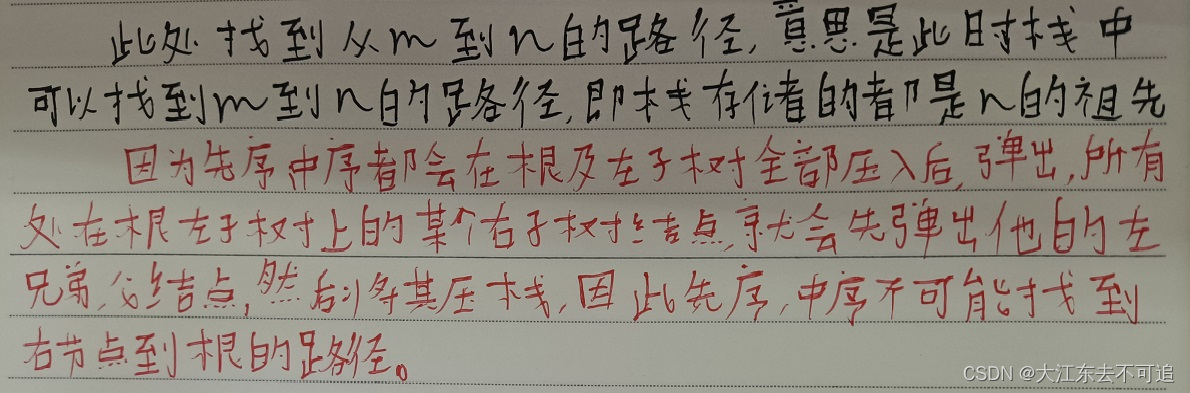 此处找到从m到n的路径,意思是此时栈中
可以找到m到n的路径,即栈存储着的都是n的祖先
因为先序中序都会在根及左子树全部压入后,弹出,所有
处在根左子树上的某个右子树结点,就会先弹出他的左
兄弟,父结点,然后将其压栈,因此先序,中序不可能找到
右节点到根的路径。
CSDN @大江东去不可追